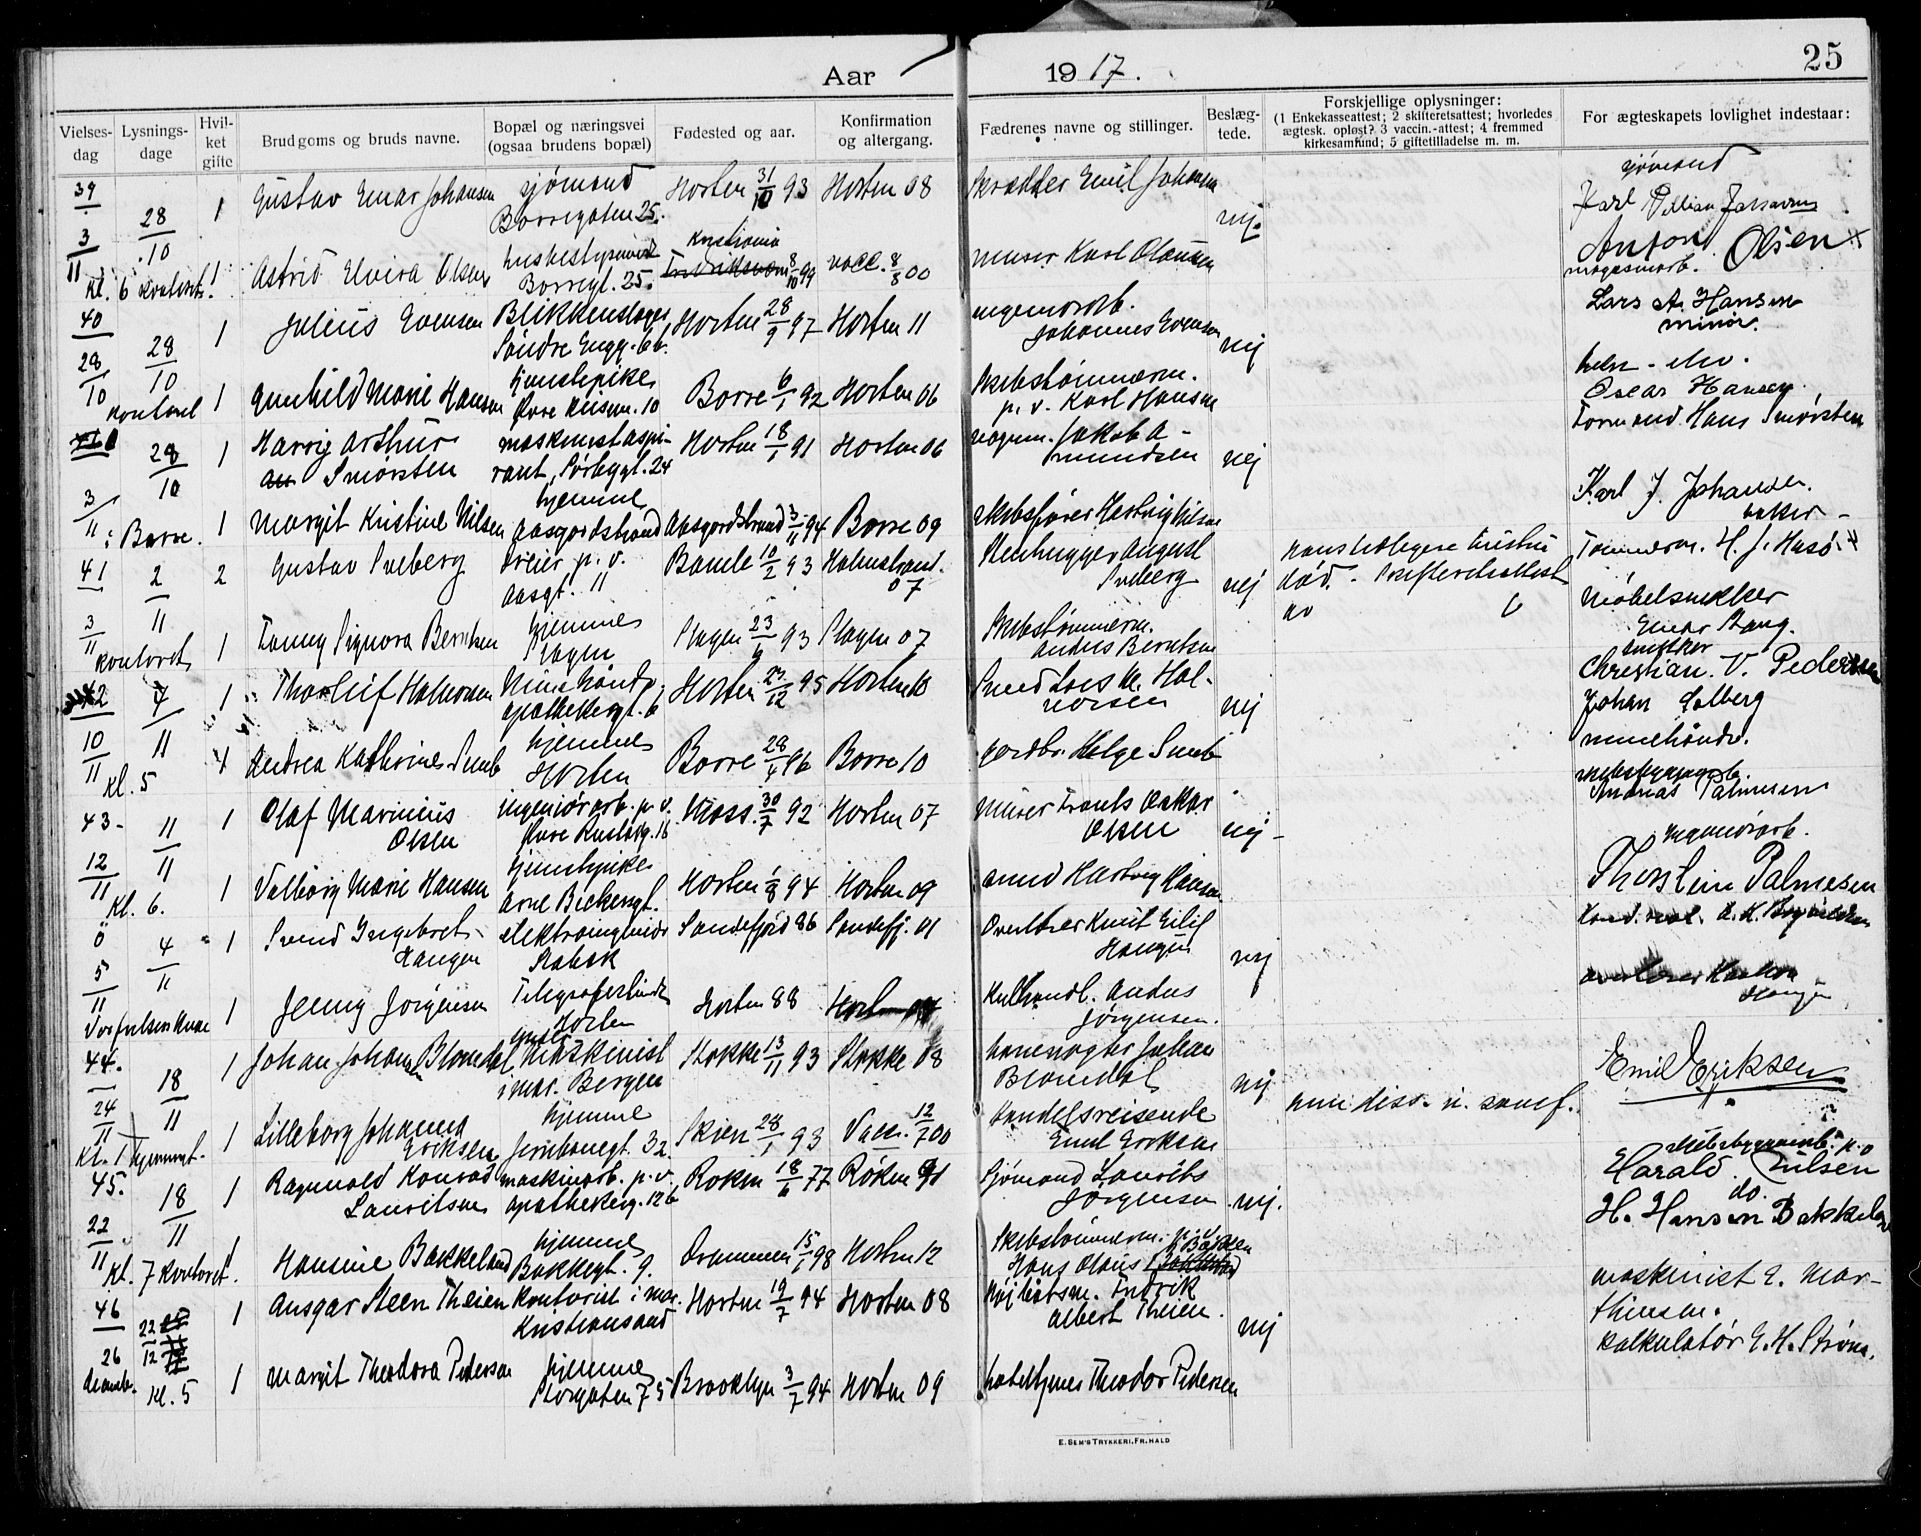 Aar 1917.
25
Vielses-dag
Lysnings-dage
Hvil-ket gifte
Brudgoms og bruds navne.
Bopæl og næringsvei (ogsaa brudens bopæl)
Fødested og aar.
Konfirmation og altergang.
Fædrenes navne og stillinger.
Beslæg-tede.
Forskjellige oplysninger: (1 Enkekasseattest; 2 skifteretsattest; hvorledes ægtesk. opløst? 3 vaccin.-attest; 4 fremmed kirkesamfund; 5 giftetilladelse m. m.
For ægteskapets lovlighet indestaar:
39 28/10 1 Gustav Einar Johansen sjømand Borregaten 25. Horten 31/10 93 Horten 08 Skrædder Emil Johansen nej. sjömand Karl Johansen
3/11 Kl. 6 kontoret. 1 Astrid Elvira Olsen Borregt. 25. Kristiania Fredriksværn 8/10 99 vacc. 8/8 00 murer Karl Olausen Anton Olsen
40 28/10 1 Julius Evensen Blikkenslager Søndre Engg. 6b. Horten 28/9 97 Horten 11 Johannes Evensen nej Lars A. Hansen minör.
28/10 kontoret 1 Gunhild Marie Hansen tjenestepike Øvre Keisem. 10 Borre 6/1 92 Horten 06 Skibstømmerm. p. v. Karl Hansen Oscar Hansen
28/10 1 Harry Arthur Smørsten maskinistaspirant, Sørbygt. 24 Horten 18/1 91 Horten 06 Jakob Amundsen nej Formand Hans Smørsten
3/11 i Borre. 1 Margit Kristine Nilsen hjemme Aasgaardstrand Aasgaardstrand 3/11 94 Borre 09 skibsfører Hartvig Nilsen Karl J. Johansen. baker
41 2/11 2 Gustav Sveberg dreier p. v. Aasgt. 11 Bamle 10/2 93 Holmestrand. 07 Stenhugger August Sveberg nej hans tidligere hustru död. - Skifteretsattest av Tömmerm. H. J. Husö.
3/11 kontoret 1 Fanny Signora Berntsen hjemme Slagen Slagen 23/6 93 Slagen 07 Skibstømmerm. Anders Berntsen Möbelsnekker Einar Stang. snekker
42 7/11 1 Thorleif Halvorsen Minehaandv. apothekergt. 6 Horten 23/12 95 Horten 10 Smed Lars M. Halvorsen nej Christian. V. Pedersen Johan Solberg
10/11 Kl. 5 1 Andrea Kathrine Semb hjemme Horten Borre 28/4 96 Borre 10 gardbr. Helge Semb minehåndv.
43 - 11/11 1 Olaf Marinius Olsen ingeniörarb. p. v. Øvre Rustadg. 16 Moss. 30/7 92 Horten 07 Murer Frants Oskar Olsen nej - Andreas Palmesen
12/11 Kl. 6. 1 Valborg Marie Hansen tjenestepike Arne Bickersgt. Horten 1/8 94 Horten 09 smed Hartvig Hansen ingeniörarb. Thorstein Palmesen
ö 4/11 1 Svend Ingebret Haugen elektroingeniör Stabæk Sandefjord 86 Sandefj. 01 Overlærer Knut Eilif Haugen nej
5/11 1 Jenny Jørgensen Telegrafistinde Horten Horten 88 Horten Kulhandl. Anders Jørgensen. overlærer Haugen
44. 18/11 1 Johan Johansen Blomdal Maskinist i mar. Bergen Stokke 13/11 93 Stokke 08 havnefogter Johan Blomdal nej Emil Eriksen
24/11 Kl. 1 hjemmet. 1 Lilleborg Johanna Eriksen hjemme Jernbanegt. 32 Skien 28/1 93 Vacc. 12/7 00 Handelsreisende Emil Eriksen hun diss. u. samf.
45. 18/11 1 Ragnvald Konrad Lauritsen maskinarb. p. v. apothekerg. 12b Røken 18/6 77 Røken 91 Sjømand Laurits Jørgensen nej. Harald Nilsen do.
22/11 Kl. 7 kontoret. 1 Hansine Bakkeland hjemme Bakkegt. 9. Drammen 15/1 98 Horten 12 Skibstømmerm. Hans Olaus H. Hansen Bakkeland
46 22/12 1 Ansgar Steen Theien Kontorist i mar. Kristiansand Horten 19/7 94 Horten 08 Højbaatsm. Fredrik Albert Theien. nej maskinist E. Marthinsen.
26 decemb. Kl. 5 1 Margit Theodora Pedersen hjemme Storgaten 75 Brooklyn 3/7 94 Horten 09 hotelhjener Theodor Pedersen kalkulatör E. H. Ström.
E. SEM'S TRYKKERI, FR.HALD